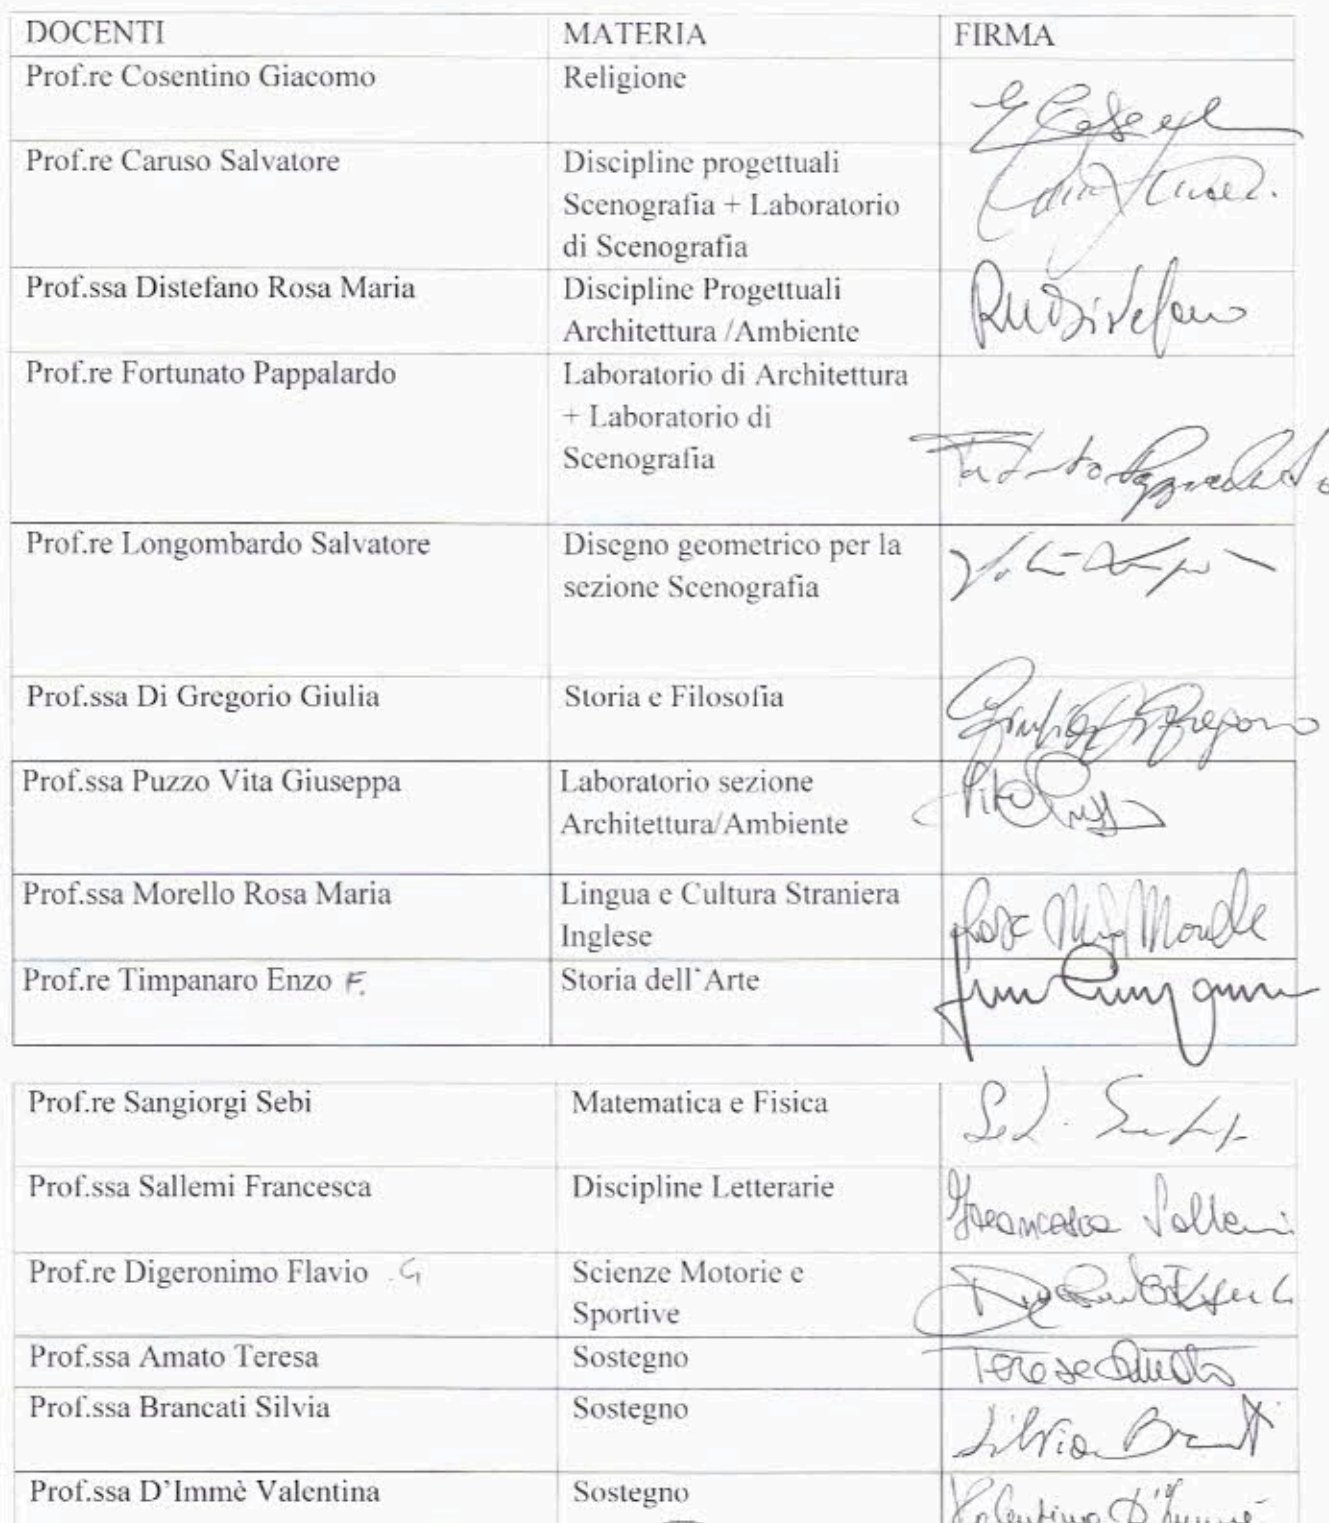 DOCENTI MATERIA FIRMA
Prof.re Cosentino Giacomo Religione
Prof.re Caruso Salvatore Discipline progettuali
Scenografia + Laboratorio
di Scenografia
Prof.ssa Distefano Rosa Maria Discipline Progettuali
Architettura /Ambiente
RMDistefano
Prof.re Fortunato Pappalardo Laboratorio di Architettura
+ Laboratorio di
Scenografia
Prof.re Longombardo Salvatore Disegno geometrico per la
sezione Scenografia
Prof.ssa Di Gregorio Giulia Storia e Filosofia
Giulia Di Gregorio
Prof.ssa Puzzo Vita Giuseppa Laboratorio sezione
Architettura/Ambiente
Prof.ssa Morello Rosa Maria Lingua e Cultura Straniera
Inglese
Prof.re Timpanaro Enzo F. Storia dell'Arte
Prof.re Sangiorgi Sebi Matematica e Fisica
Prof.ssa Sallemi Francesca Discipline Letterarie
Francesca Sallemi
Prof.re Digeronimo Flavio .G Scienze Motorie e
Sportive
Prof.ssa Amato Teresa Sostegno
Teresa Amato
Prof.ssa Brancati Silvia Sostegno
Prof.ssa D'Immè Valentina Sostegno Valentina D'Immè